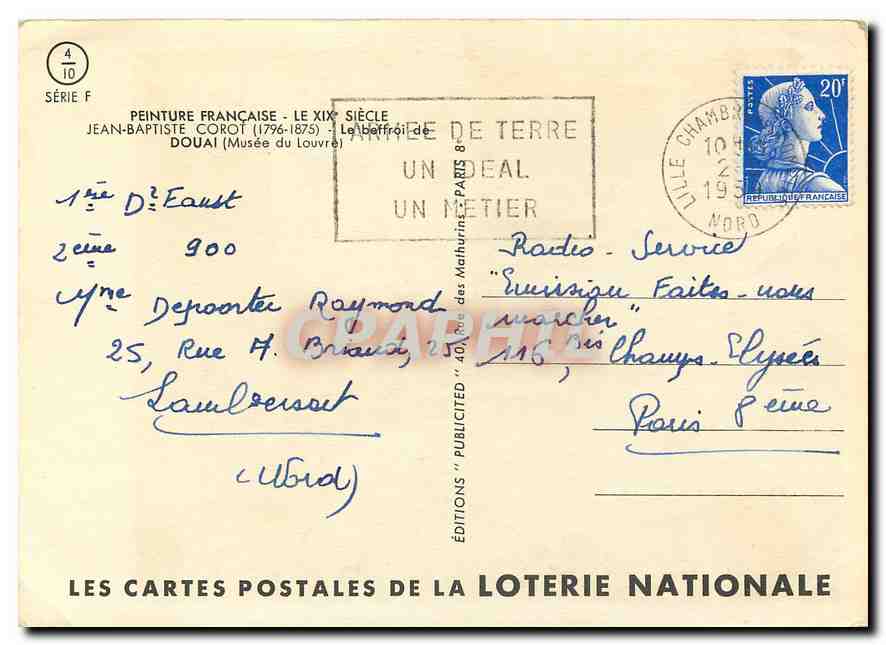 4
10
SÉRIE F
PEINTURE FRANÇAISE - LE XIXe SIÈCLE
JEAN-BAPTISTE COROT (1796-1875) - Le beffroi de
DOUAI (Musée du Louvre)
ARMEE DE TERRE
UN IDEAL
UN METIER
LILLE CHAMBR
10H
2
195
NORD
POSTES
20F
REPUBLIQUE FRANÇAISE
1ère Dr Faust
2ème 900
Mme Depoorter Raymond
25, Rue A. Briand, 25
Lambersart
(Nord)
EDITIONS " PUBLICITED " 40, Rue des Mathurins, PARIS 8e
Radio-Service
"Emission Faites-nous
marcher"
116, Bis Champs-Elysées
Paris 8ème
CPAPHIL
LES CARTES POSTALES DE LA LOTERIE NATIONALE